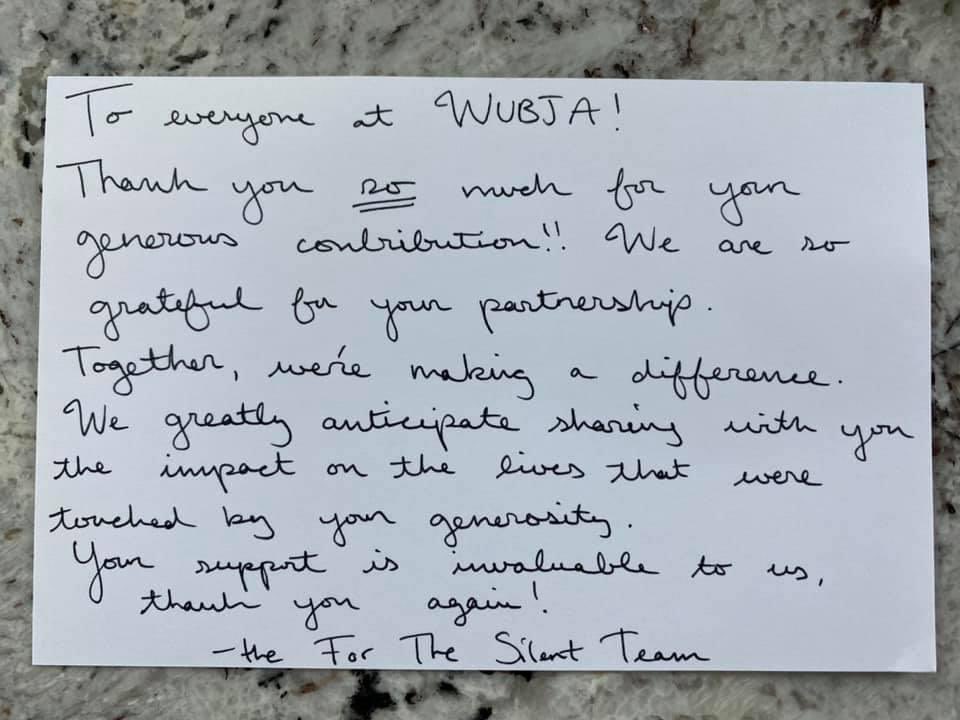 To everyone at WUBJA!
Thank you so much for your
generous contribution!! We are so
grateful for your partnership.
Together, we're making a difference.
We greatly anticipate sharing with you
the impact on the lives that were
touched by your generosity.
Your support is invaluable to us,
thank you again!
-the For The Silent Team